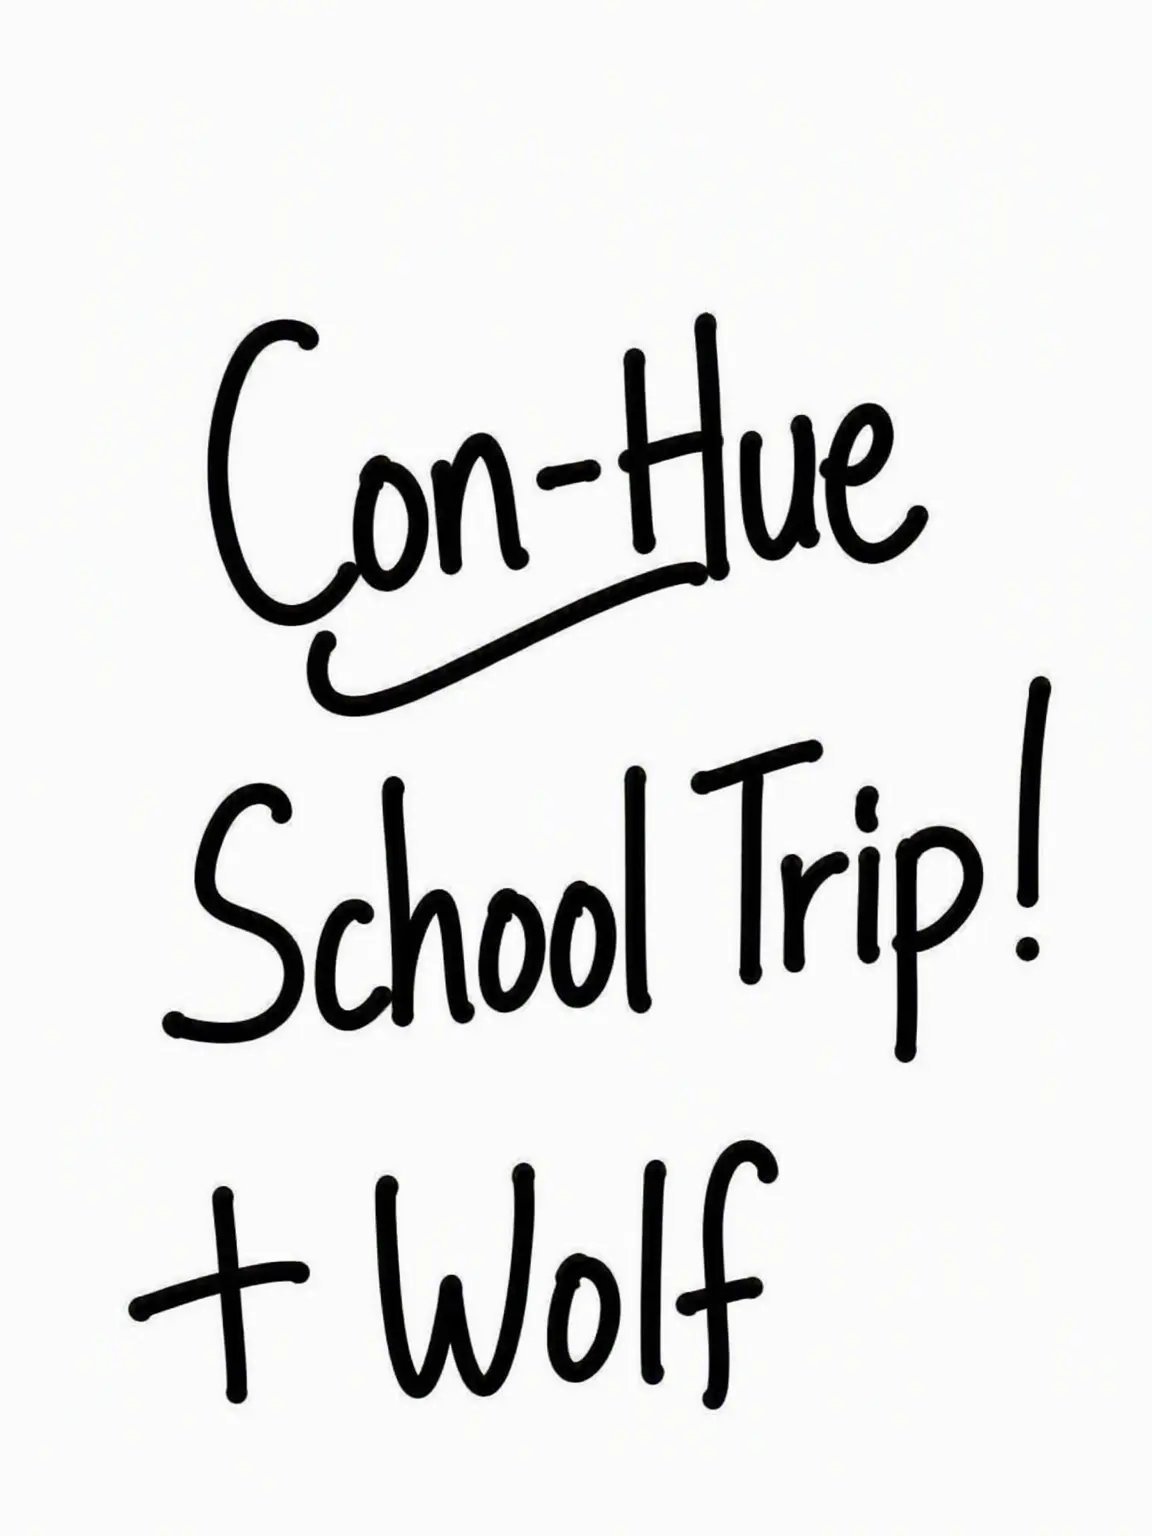 Con-Hue
School Trip!
+ Wolf